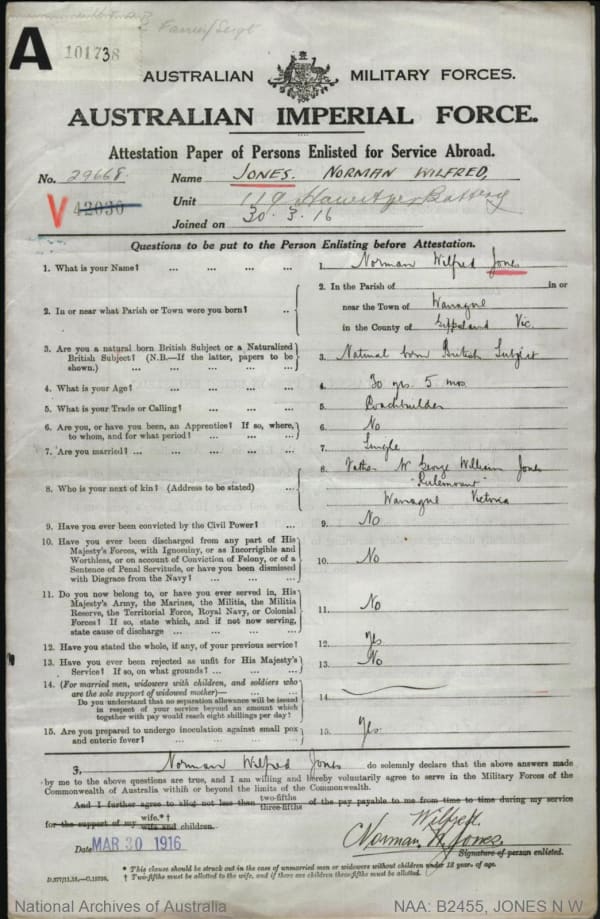 A
101738
Farrier/Sergt
AUSTRALIAN MILITARY FORCES.
AUSTRALIAN IMPERIAL FORCE.
Attestation Paper of Persons Enlisted for Service Abroad.
No. 29668. Name JONES. NORMAN WILFRED,
V 42030 Unit 119 Howitzer Battery
Joined on 30.3.16
Questions to be put to the Person Enlisting before Attestation.
1. What is your Name? ... ... ... ... 1. Norman Wilfred Jones
2. In or near what Parish or Town were you born? .. 2. In the Parish of in or
near the Town of Warragul
in the County of Gippsland Vic.
3. Are you a natural born British Subject or a Naturalized
British Subject? (N.B.—If the latter, papers to be
shown.) ... ... ... ... 3. Natural born British Subject
4. What is your Age? ... ... ... ... 4. 30 yrs 5 mos
5. What is your Trade or Calling? ... ... ... 5. Coachbuilder
6. Are you, or have you been, an Apprentice? If so, where,
to whom, and for what period? ... ... ... 6. No
7. Are you married? ... ... ... ... 7. Single
8. Who is your next of kin? (Address to be stated) ... 8. Father Mr George William Jones
Warragul Victoria
9. Have you ever been convicted by the Civil Power? ... 9. No
10. Have you ever been discharged from any part of His
Majesty's Forces, with Ignominy, or as Incorrigible and
Worthless, or on account of Conviction of Felony, or of a
Sentence of Penal Servitude, or have you been dismissed
with Disgrace from the Navy? ... ... ... 10. No
11. Do you now belong to, or have you ever served in, His
Majesty's Army, the Marines, the Militia, the Militia
Reserve, the Territorial Force, Royal Navy, or Colonial
Forces? If so, state which, and if not now serving,
state cause of discharge ... ... ... ... 11. No
12. Have you stated the whole, if any, of your previous service? 12. Yes
13. Have you ever been rejected as unfit for His Majesty's
Service? If so, on what grounds? ... ... ... 13. No
14. (For married men, widowers with children, and soldiers who
are the sole support of widowed mother)—
Do you understand that no separation allowance will be issued
in respect of your service beyond an amount which
together with pay would reach eight shillings per day? 14.
15. Are you prepared to undergo inoculation against small pox
and enteric fever? ... ... ... ... 15. Yes
I, Norman Wilfred Jones do solemnly declare that the above answers made
by me to the above questions are true, and I am willing and hereby voluntarily agree to serve in the Military Forces of the
Commonwealth of Australia within or beyond the limits of the Commonwealth.
And I further agree to allot not less than two-fifths
three-fifths of the pay payable to me from time to time during my service
for the support of my wife.*†
wife and children.
Wilfred
Date MAR 30 1916 Norman W Jones.
Signature of person enlisted.
* This clause should be struck out in the case of unmarried men or widowers without children under 18 year. of age.
† Two-fifths must be allotted to the wife, and if there are children three-fifths must be allotted.
National Archives of Australia NAA: B2455, JONES N W